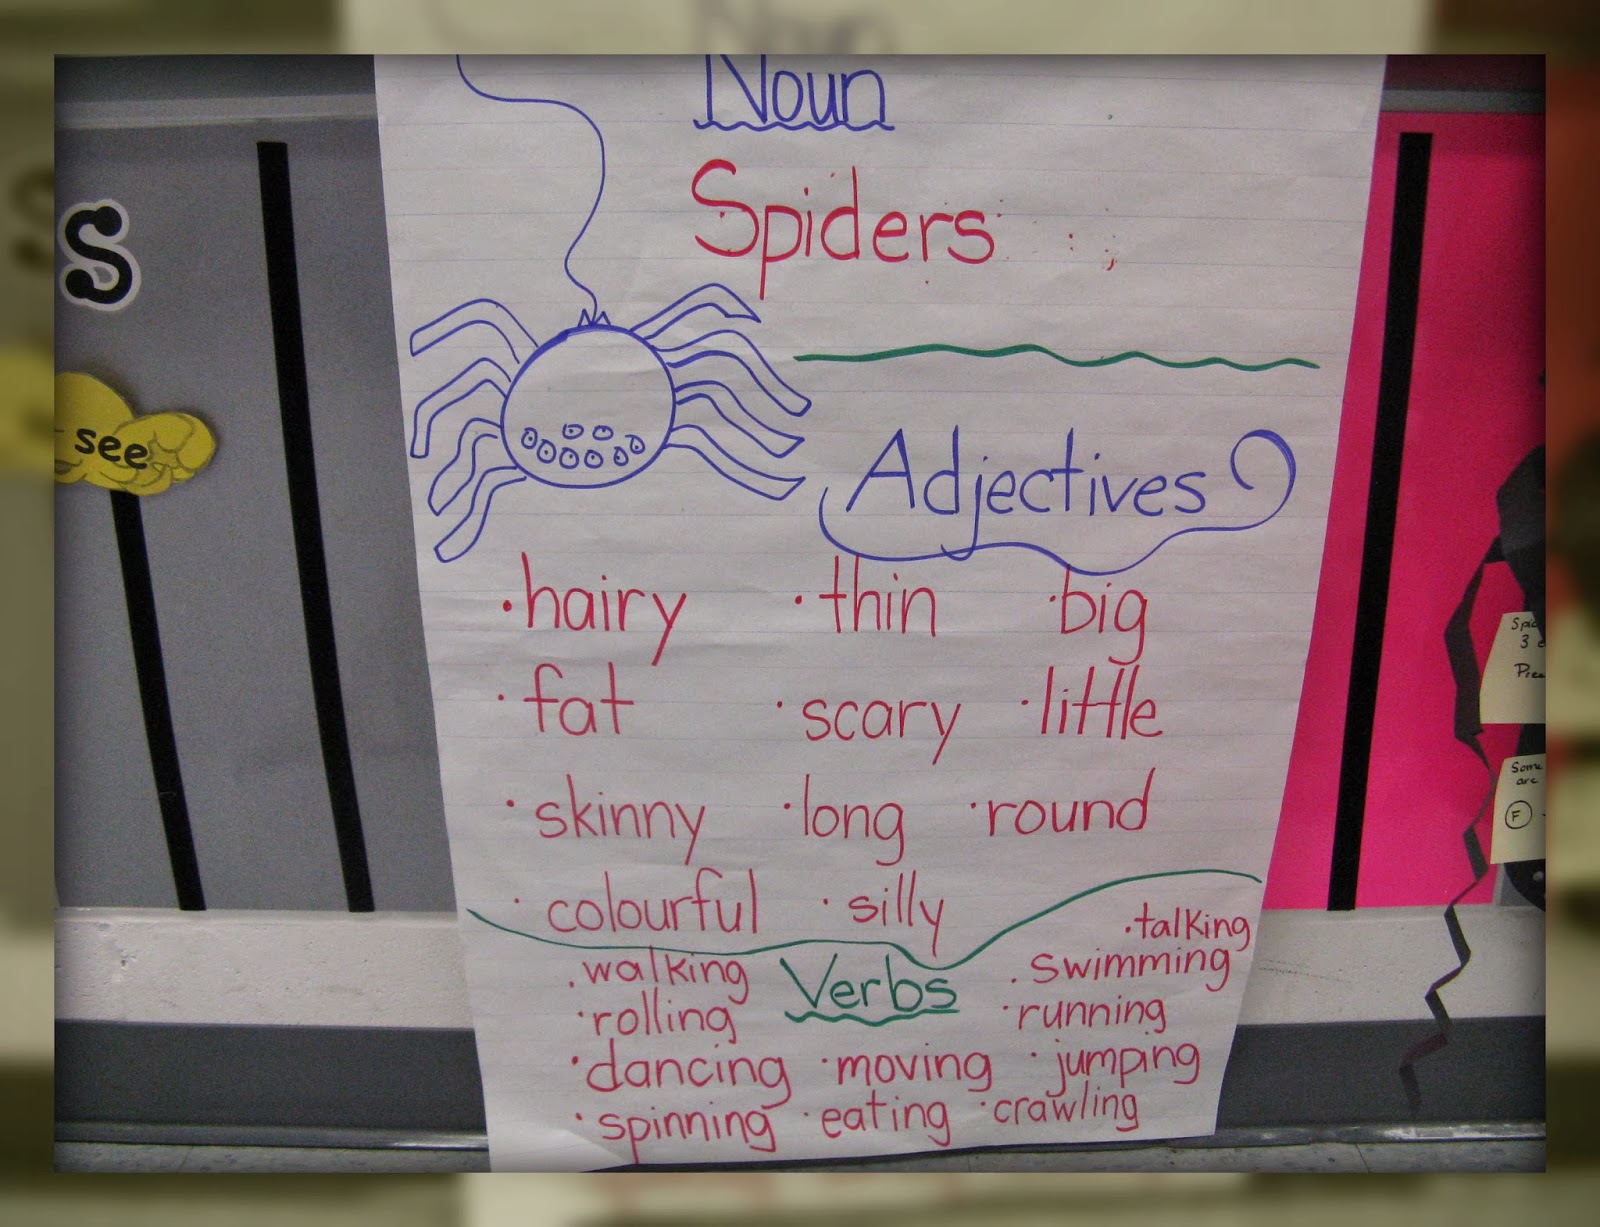 Noun
Spiders
Adjectives
· hairy · thin · big
· fat · scary · little
· skinny · long · round
· colourful · silly
Verbs
· walking
· rolling
· talking
· swimming
· running
· dancing · moving · jumping
· spinning · eating · crawling
s
see
3
Some
are
F